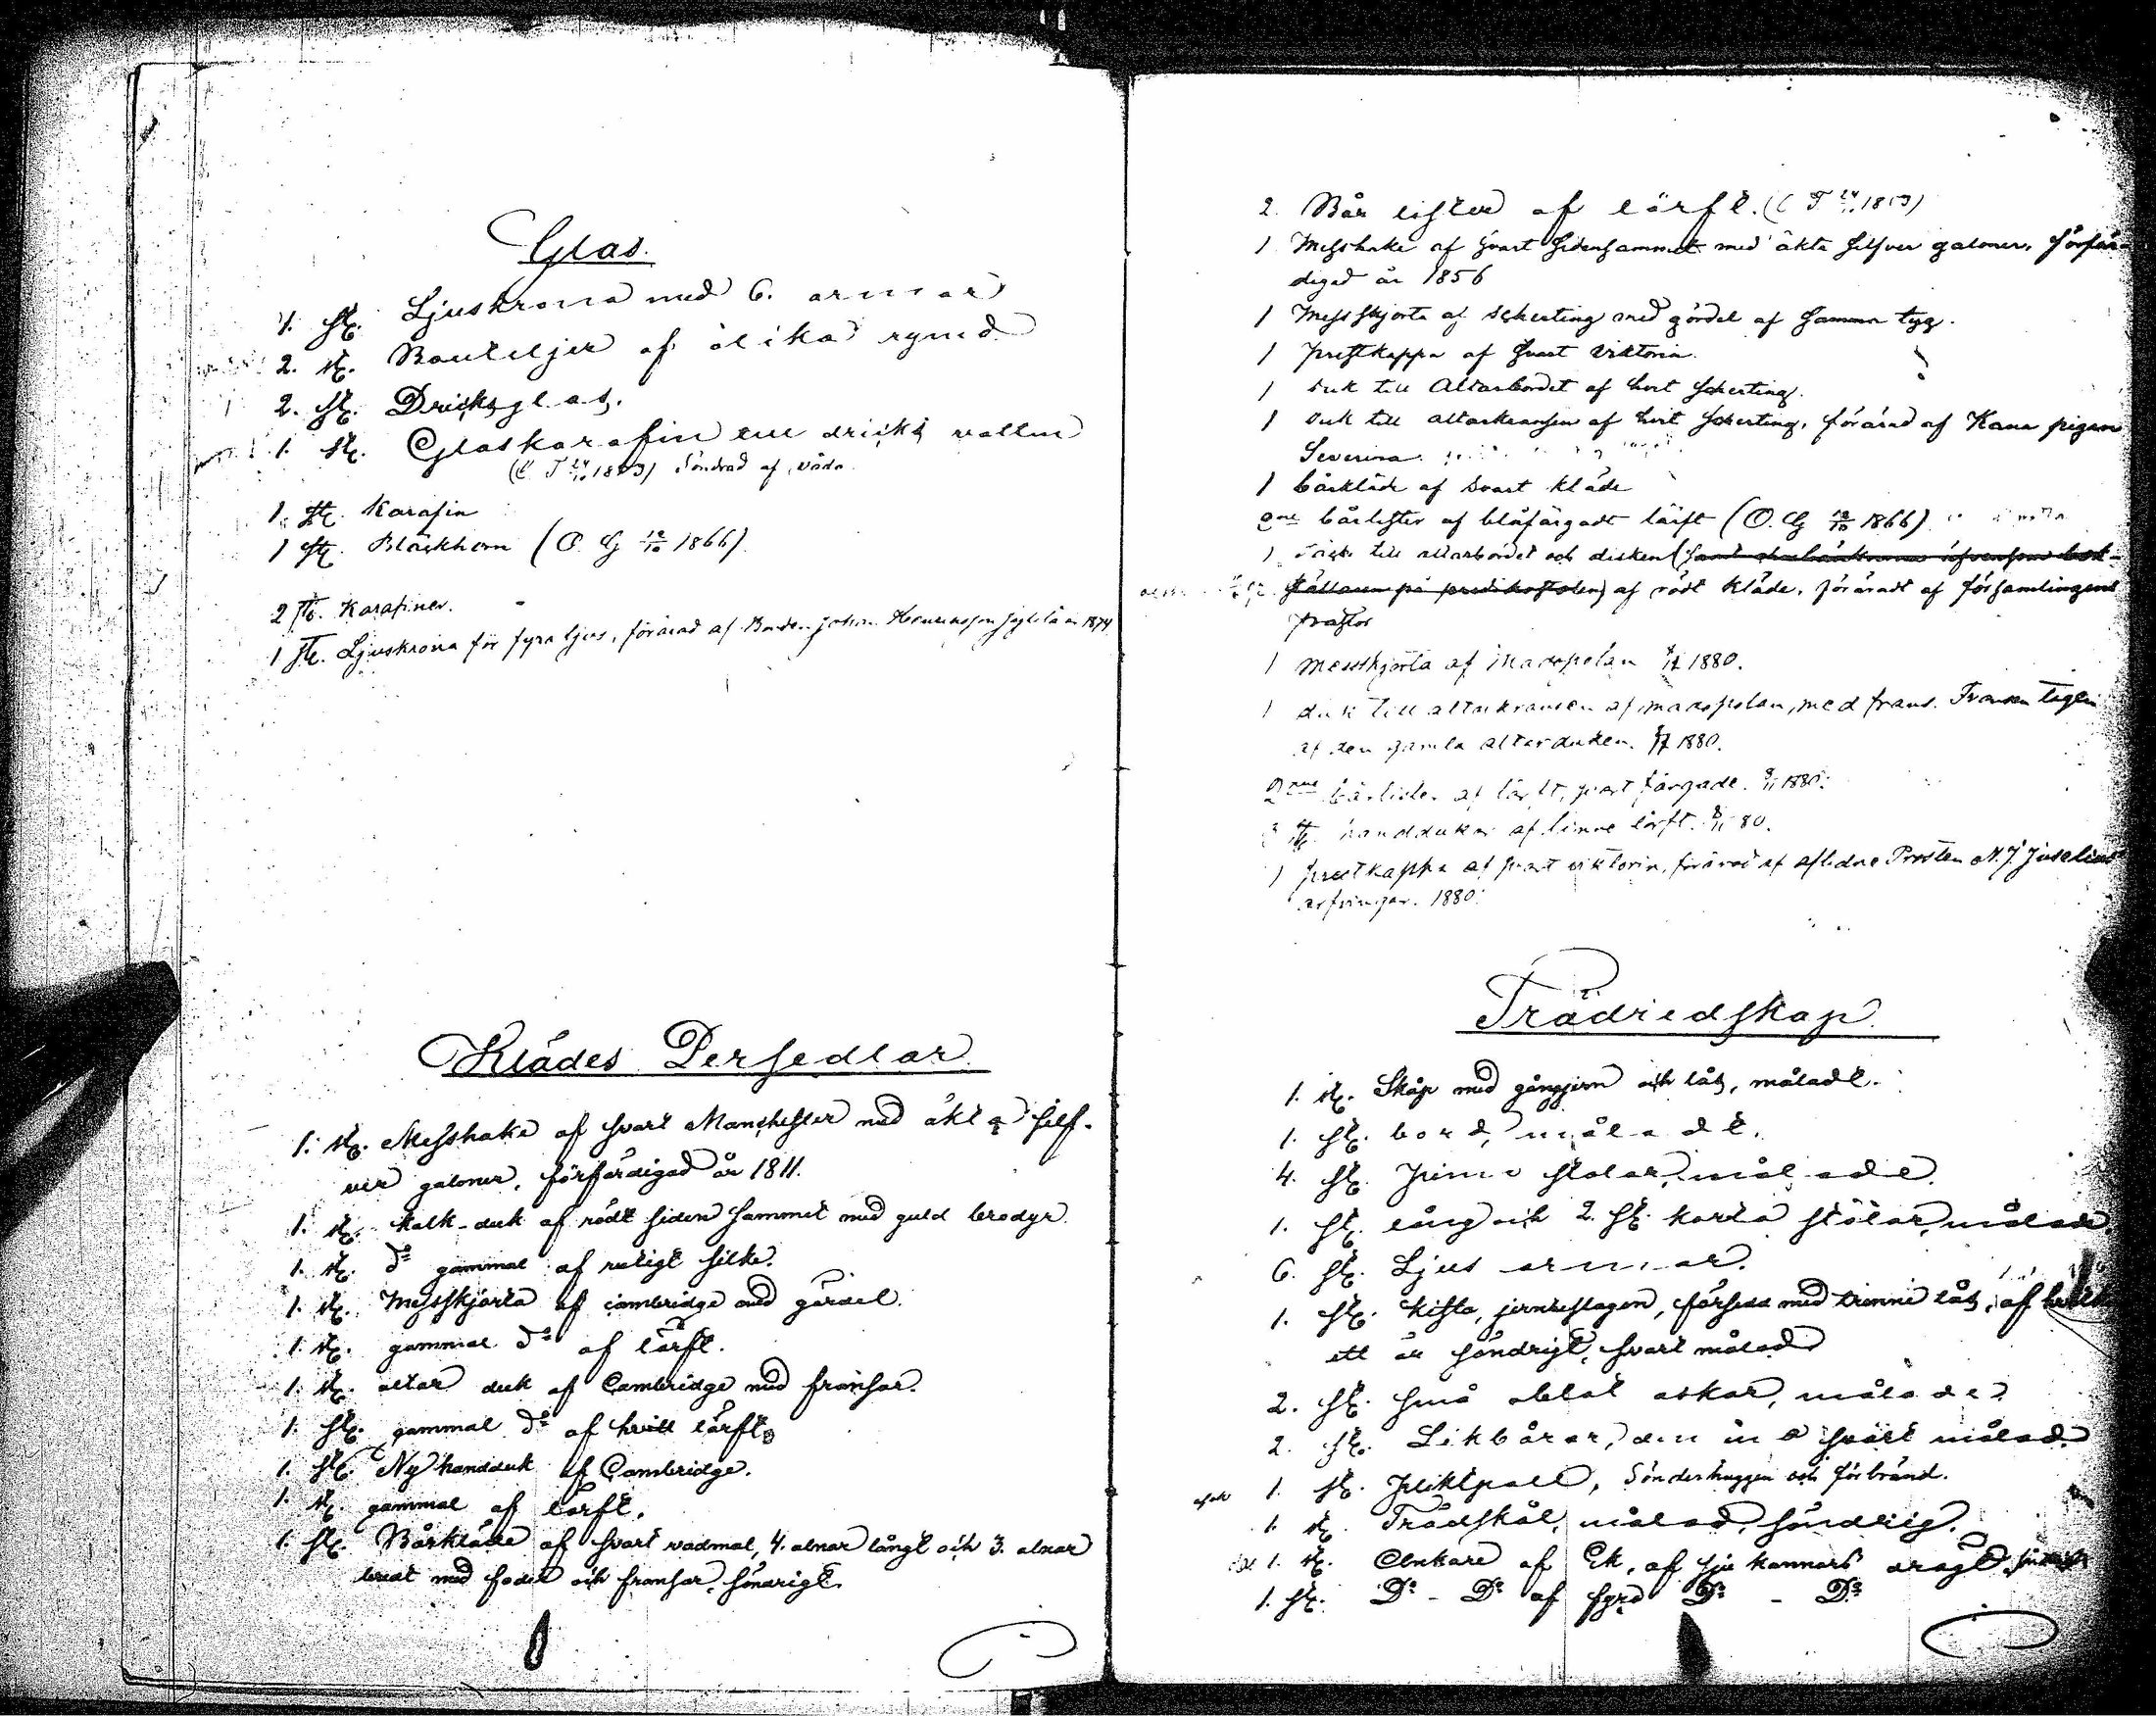 Glas.
1. st. Ljuskrona med 6. armar
2. st. Bouteljer af olika rymd
2. st. Dricksglas.
1. st. Glaskarafin till dricks vatten
1803) Söndrad af våda.
1. st. Karafin
1 st. Bläckhorn (O. G 12/10 1866)
2 st. Karafiner.
1 st. Ljuskrona för fyra ljus, förärad af Bonden Johan 1874
Klädes Persedlar
1. st. Messhake af svart Manchester med äkta silf-
ver galoner, förfärdigad år 1811.
1. st. kalk-duk af rödt siden sammet med guld brodyr.
1. st. do gammal af rutigt silke.
1. st. Messskjorta af cambridge med gördel.
1. st. gammal do af lärft.
1. st. altar duk af Cambridge med fransar.
1. st. gammal do af hvitt lärft.
1. st. Ny handduk af Cambridge.
1. st. gammal af lärft.
1. st. Bårkläde af svart vadmal, 4. alnar långt och 3. alnar
bredt med foder och fransar, söndrigt.
2. Bår lister af lärft.
1 Messhake af svart sidensammet med äkta silfver galoner, förfär-
digad år 1856
1 Messskjorta af scherting med gördel af samma tyg.
1 prestkappa af svart Viktoria.
1 duk till Altarbordet af hvit scherting.
1 duk till altarkransen af hvit scherting, förärad af Kana pigan
Severina
1 bårkläde af svart kläde
2ne bårlister af blåfärgadt lärft (O. G 12/10 1866)
1 till altarbordet och disken
på predikostolen) af rödt kläde, föräradt af församlingens
prästor
1 Messskjorta af Madopolan 1880.
1 duk till altarkransen af madopolan, med frans. Fransen tagen
af den gamla altarduken. 1880.
2ne bårlister af lärft, svart färgade. 1880.
st. handdukar af linne lärft. 80.
1 prestkappa af svart viktoria, förärad af aflidne Prosten N. J. Juselius
arfvingar. 1880.
Trädredskap
1. st. Skåp med gångjern och lås, måladt.
1. st. bord, måladt.
4. st. stolar, målade
1. st. lång och 2. st. korta stolar, målade
6. st. Ljus armar.
1. st. kista, jernbeslagen, försedd med trenne lås, af hvilka
ett är söndrigt, svart målad
2. st. små oblat askar, målade
2. st. Likbårar, den ena svart målad.
1. st. Pliktpall, Sönderhuggen och förbränd.
1. st. Trädskål, målad, söndrig.
1. st. Ankare af Ek, af sju kannors dragt,
1. st. Do - Do af fyra Do - Do